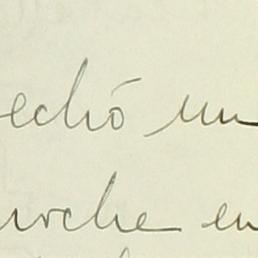 echó un
noche en